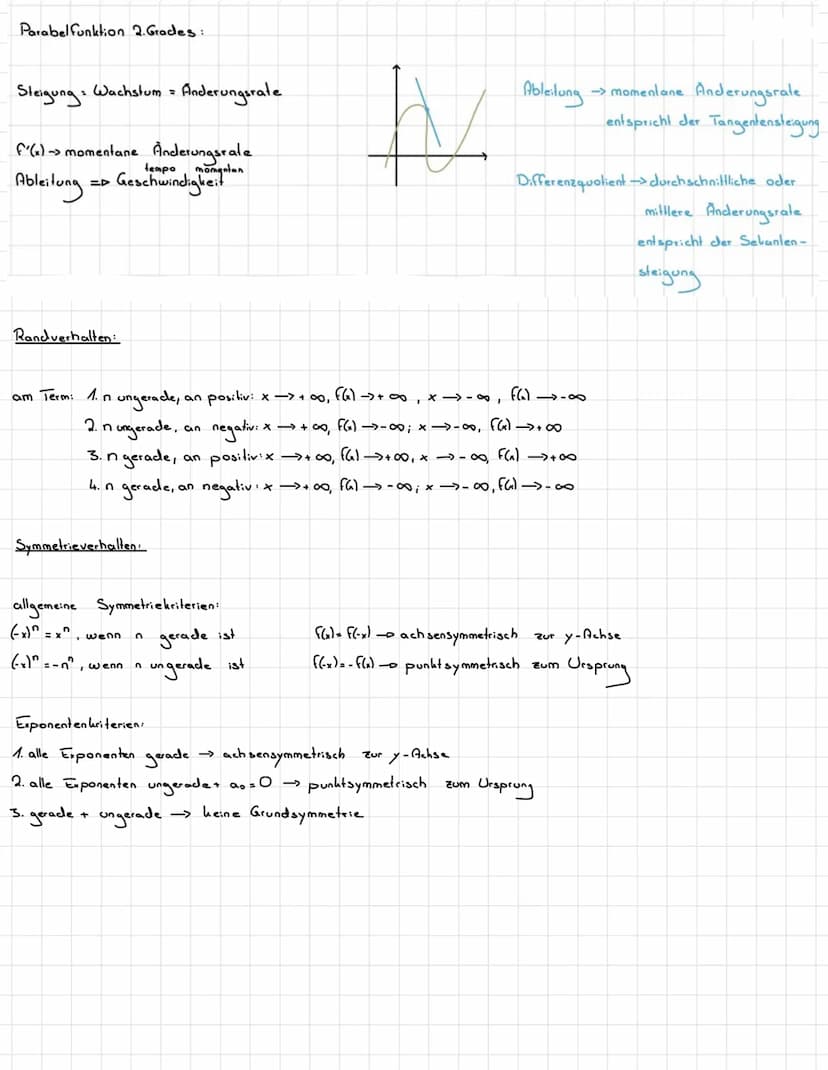 Parabelfunktion 2. Grades:
Steigung = Wachstum = Änderungsrate
f'(x) -> momentane Änderungsrate
tempo momentan
Ableitung => Geschwindigkeit
Ableitung -> momentane Änderungsrate
entspricht der Tangentensteigung
Differenzquotient -> durchschnittliche oder
mittlere Änderungsrate
entspricht der Sekanten-
steigung
Randverhalten:
am Term: 1. n ungerade, an positiv: x -> + ∞, f(x) -> + ∞, x -> - ∞, f(x) -> - ∞
2. n ungerade, an negativ: x -> + ∞, f(x) -> - ∞; x -> - ∞, f(x) -> + ∞
3. n gerade, an positiv: x -> + ∞, f(x) -> + ∞, x -> - ∞, f(x) -> + ∞
4. n gerade, an negativ: x -> + ∞, f(x) -> - ∞; x -> - ∞, f(x) -> - ∞
Symmetrieverhalten:
allgemeine Symmetriekriterien:
(-x)ⁿ = xⁿ, wenn n gerade ist f(x) = f(-x) -> achsensymmetrisch zur y-Achse
(-x)ⁿ = -nⁿ, wenn n ungerade ist f(-x) = -f(x) -> punktsymmetrisch zum Ursprung
Exponentenkriterien:
1. alle Exponenten gerade -> achsensymmetrisch zur y-Achse
2. alle Exponenten ungerade + a₀ = 0 -> punktsymmetrisch zum Ursprung
3. gerade + ungerade -> keine Grundsymmetrie